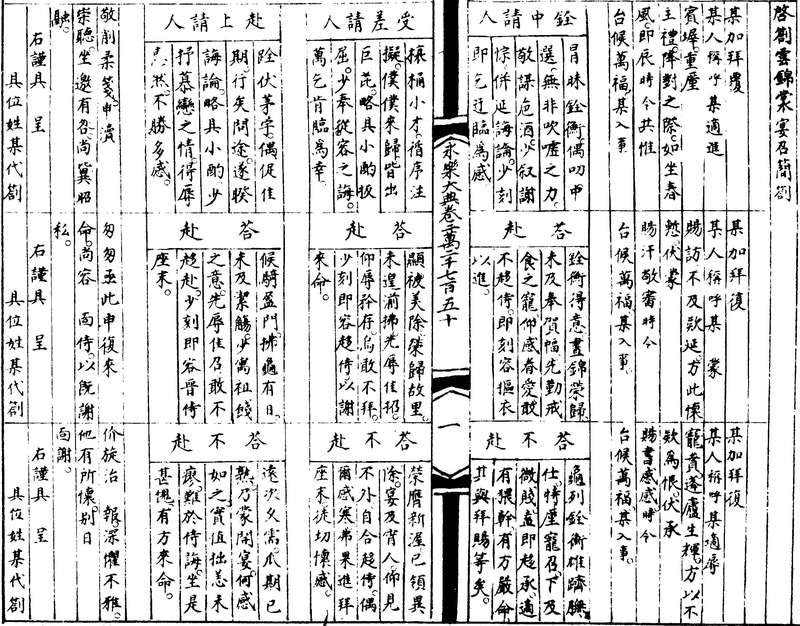 啓劄雲錦裳宴召簡劄
某加拜覆
某人稱呼某適進
賓墀重塵
主禮降對之際如坐春
風即辰時令共惟
台候萬福某入事
某加拜復
某人稱呼某 蒙
賜訪不及欵延方此懷
慙伏蒙
賜汗敬審時令
台候萬福某入事
某加拜復
某人稱呼某適辱
寵賁蓬廬生輝方以不
欵為恨伏承
賜書感感時令
台候萬福某入事
銓中請人
冒昧銓衡偶叨中
選無非吹噓之力
敬謀危酒少叙謝
悰併延誨論少刻
即乞迂臨為感
答赴
銓衡得意晝錦榮歸
未及奉賀幅先勤戒
食之寵仰感眷愛敢
不趨侍即刻容摳衣
以進
答不赴
龜列銓衡雄躋膴
仕特塵寵召下及
微賤直即趨承適
有猥幹有方嚴命
其輿拜賜等矣
永樂大典卷二萬二千七百五十
一
受差請人
榱桷小才循序注
擬僕僕來歸皆出
巨芘略具小酌扳
屈少奉從容之誨
萬乞肯臨為幸
答赴
顯被美除榮歸故里
未遑前拂先辱佳招
仰辱矜存烏敢不拜
少刻即容趨侍以謝
來命
答不赴
榮膺新渥已領異
除宴及肯人仰見
不外自合趨侍偶
爾感寒弗果進拜
座末徒切懷感
赴上請人
伏茅宇偶促佳
期行矣問途遂睽
誨論略具小酌少
抒慕戀之情得辱
惠然不勝多感
答赴
候騎盈門拂龜有日
未及潔觴少寓祖餞
之意先辱佳召敢不
趨赴少刻即容晉侍
座末
答不赴
遠次久需瓜期已
熟乃蒙開宴何感
如之實值拙恙未
瘳難於侍誨坐是
甚愧有方來命
敬劀柔箋申瀆
崇聽坐邀有召尚冀昭
融
右謹具 呈
具位姓某代劄
匆匆亟此申復來
命尚容 面侍以既謝
私
右謹具 呈
具位姓某代劄
价旋治 報深懼不雅
他有所懷別日
面謝
右謹具 呈
具位姓某代劄